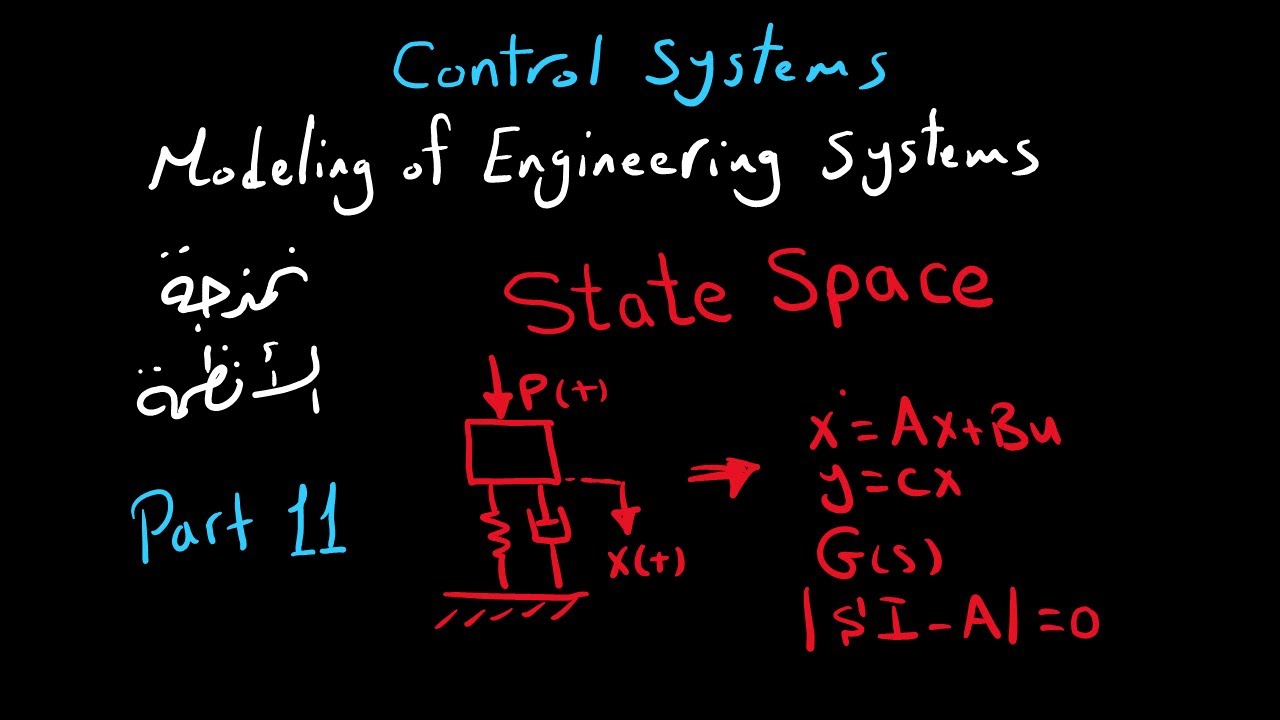 Control Systems
Modeling of Engineering Systems
نمذجة
الأنظمة
State Space
P(t)
x(t)
Part 11
ẋ = Ax+Bu
y = cx
G(s)
|SI-A|=0